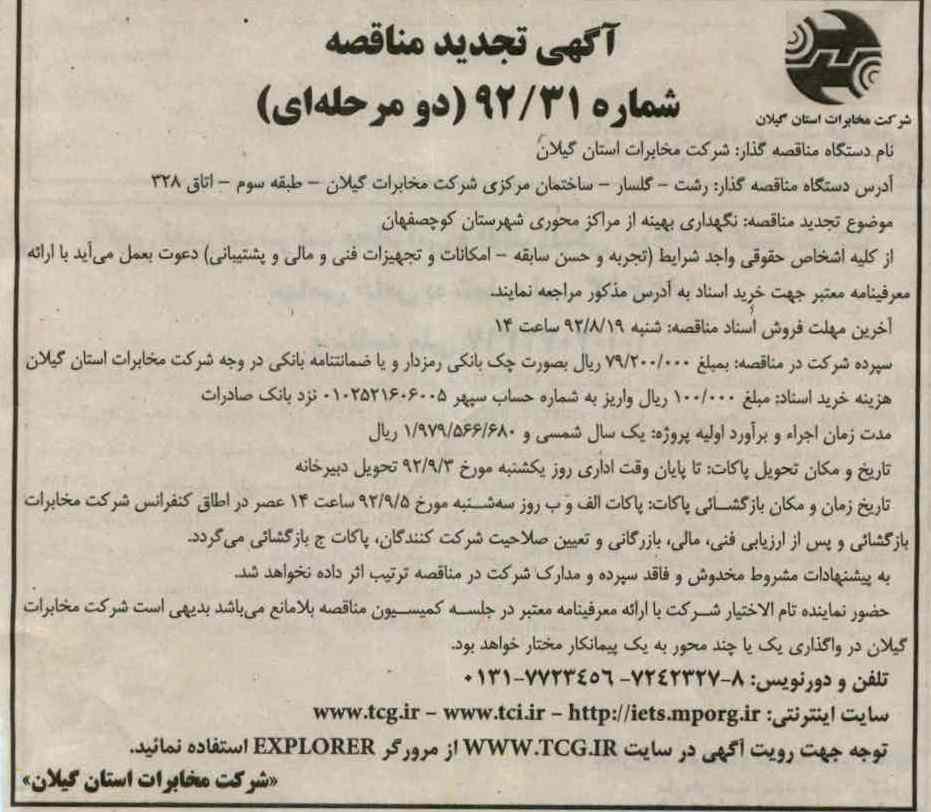 آگهی تجدید مناقصه
شماره ۹۲/۳۱ (دو مرحله‌ای)
شرکت مخابرات استان گیلان
نام دستگاه مناقصه گذار: شرکت مخابرات استان گیلان
آدرس دستگاه مناقصه گذار: رشت – گلسار – ساختمان مرکزی شرکت مخابرات گیلان – طبقه سوم – اتاق ۳۲۸
موضوع تجدید مناقصه: نگهداری بهینه از مراکز محوری شهرستان کوچصفهان
از کلیه اشخاص حقوقی واجد شرایط (تجربه و حسن سابقه – امکانات و تجهیزات فنی و مالی و پشتیبانی) دعوت بعمل می‌آید با ارائه
معرفینامه معتبر جهت خرید اسناد به آدرس مذکور مراجعه نمایند.
آخرین مهلت فروش اسناد مناقصه: شنبه ۹۲/۸/۱۹ ساعت ۱۴
سپرده شرکت در مناقصه: بمبلغ ۷۹/۲۰۰/۰۰۰ ریال بصورت چک بانکی رمزدار و یا ضمانتنامه بانکی در وجه شرکت مخابرات استان گیلان
هزینه خرید اسناد: مبلغ ۱۰۰/۰۰۰ ریال واریز به شماره حساب سپهر ۰۱۰۲۵۲۱۶۰۶۰۰۵ نزد بانک صادرات
مدت زمان اجراء و برآورد اولیه پروژه: یک سال شمسی و ۱/۹۷۹/۵۶۶/۶۸۰ ریال
تاریخ و مکان تحویل پاکات: تا پایان وقت اداری روز یکشنبه مورخ ۹۲/۹/۳ تحویل دبیرخانه
تاریخ زمان و مکان بازگشائی پاکات: پاکات الف و ب روز سه‌شنبه مورخ ۹۲/۹/۵ ساعت ۱۴ عصر در اطاق کنفرانس شرکت مخابرات
بازگشائی و پس از ارزیابی فنی، مالی، بازرگانی و تعیین صلاحیت شرکت کنندگان، پاکات ج بازگشائی می‌گردد.
به پیشنهادات مشروط مخدوش و فاقد سپرده و مدارک شرکت در مناقصه ترتیب اثر داده نخواهد شد.
حضور نماینده تام الاختیار شرکت با ارائه معرفینامه معتبر در جلسه کمیسیون مناقصه بلامانع می‌باشد بدیهی است شرکت مخابرات
گیلان در واگذاری یک یا چند محور به یک پیمانکار مختار خواهد بود.
تلفن و دورنویس: ۸-۷۲۴۲۳۲۷- ۷۷۲۳۴۵۶-۰۱۳۱
سایت اینترنتی: www.tcg.ir – www.tci.ir – http://iets.mporg.ir
توجه جهت رویت آگهی در سایت WWW.TCG.IR از مرورگر EXPLORER استفاده نمائید.
«شرکت مخابرات استان گیلان»